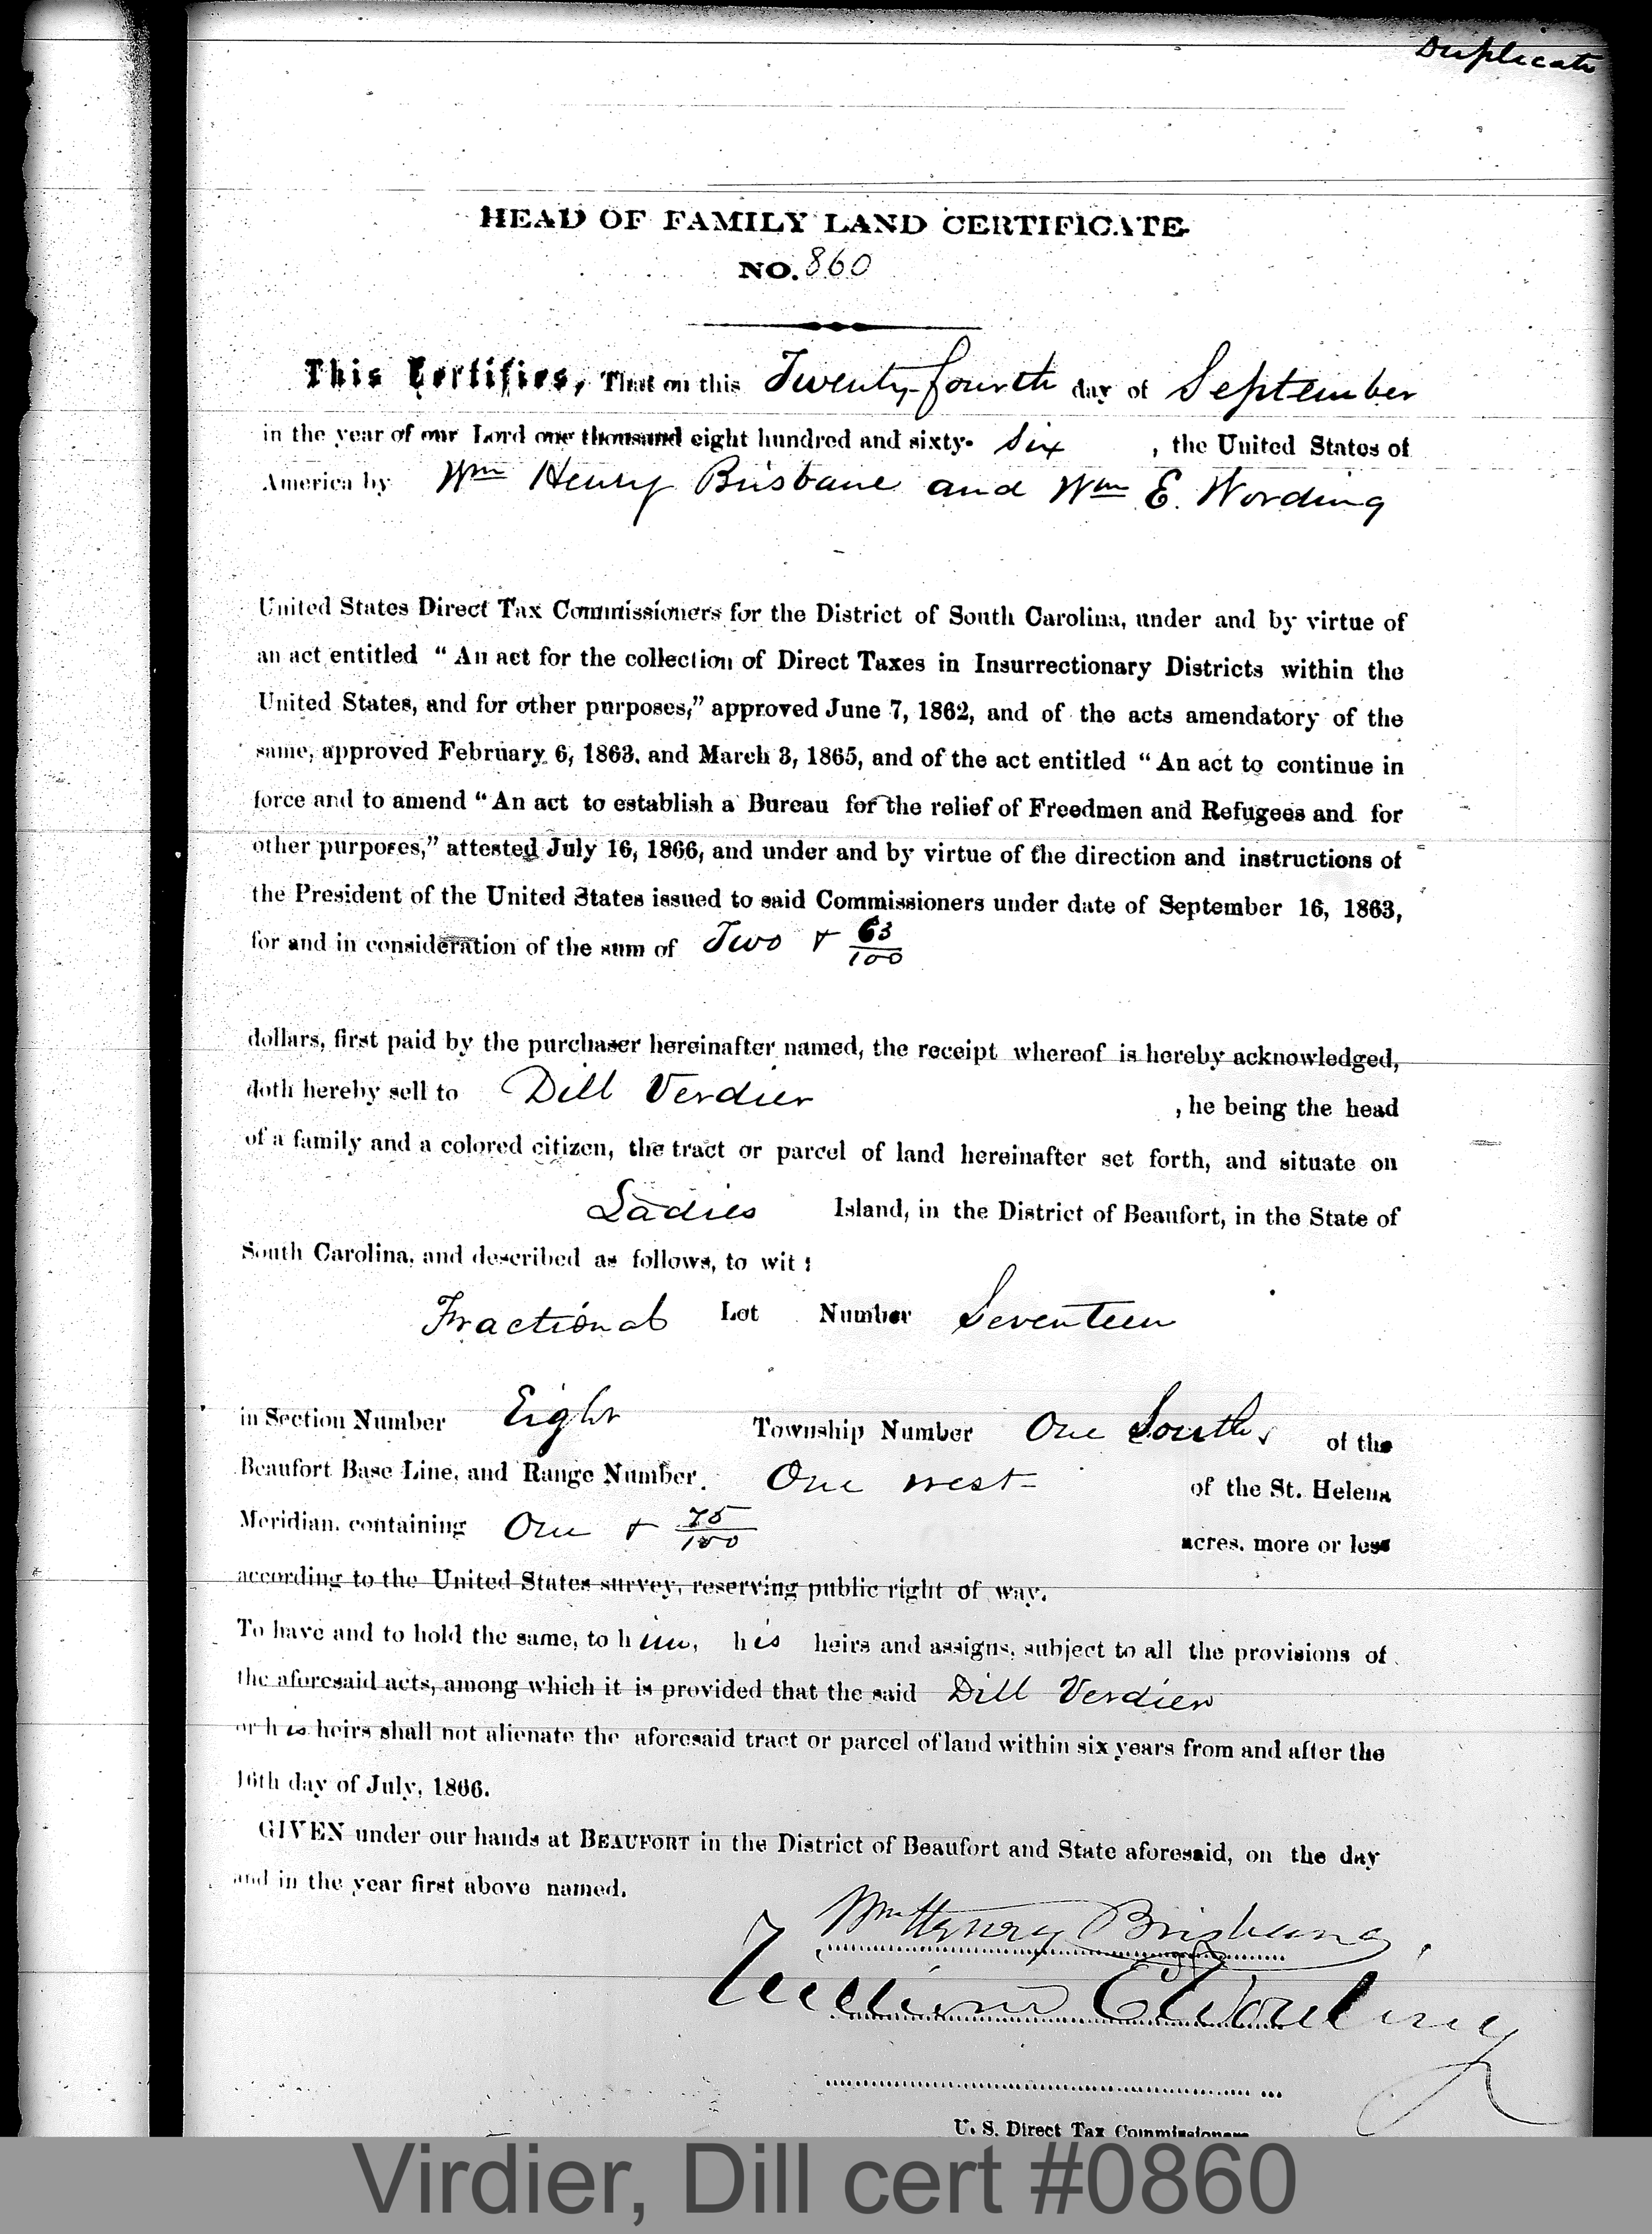 Duplicate
HEAD OF FAMILY LAND CERTIFICATE
NO. 860
This Certifies, That on this Twenty-fourth day of September
in the year of our Lord one thousand eight hundred and sixty- six , the United States of
America by Wm Henry Brisbane and Wm E. Wording
United States Direct Tax Commissioners for the District of South Carolina, under and by virtue of
an act entitled “ An act for the collection of Direct Taxes in Insurrectionary Districts within the
United States, and for other purposes,” approved June 7, 1862, and of the acts amendatory of the
same, approved February 6, 1863, and March 3, 1865, and of the act entitled “ An act to continue in
force and to amend “ An act to establish a Bureau for the relief of Freedmen and Refugees and for
other purposes,” attested July 16, 1866, and under and by virtue of the direction and instructions of
the President of the United States issued to said Commissioners under date of September 16, 1863,
for and in consideration of the sum of Two & 63/100
dollars, first paid by the purchaser hereinafter named, the receipt whereof is hereby acknowledged,
doth hereby sell to Dill Verdier , he being the head
of a family and a colored citizen, the tract or parcel of land hereinafter set forth, and situate on
Ladies Island, in the District of Beaufort, in the State of
South Carolina, and described as follows, to wit :
Fractional Lot Number Seventeen
in Section Number Eight Township Number One South, of the
Beaufort Base Line, and Range Number. One west of the St. Helena
Meridian, containing One & 75/100 acres, more or less
according to the United States survey, reserving public right of way.
To have and to hold the same, to him, his heirs and assigns, subject to all the provisions of
the aforesaid acts, among which it is provided that the said Dill Verdier
or his heirs shall not alienate the aforesaid tract or parcel of land within six years from and after the
16th day of July, 1866.
GIVEN under our hands at BEAUFORT in the District of Beaufort and State aforesaid, on the day
and in the year first above named.
Wm Henry Brisbane
William E Wording
U. S. Direct Tax Commissioners
Virdier, Dill cert #0860